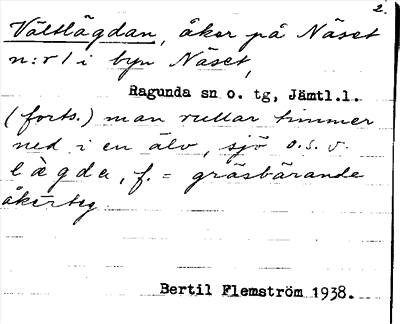 2.
Vältlägdan, åker på Näset
n:r 1 i byn Näset,
Ragunda sn o. tg, Jämtl.l.
(forts.) man rullar timmer
ned i en älv, sjö o.s.v.
lägda, f. = gräsbärande
åkerteg
Bertil Flemström 1938.